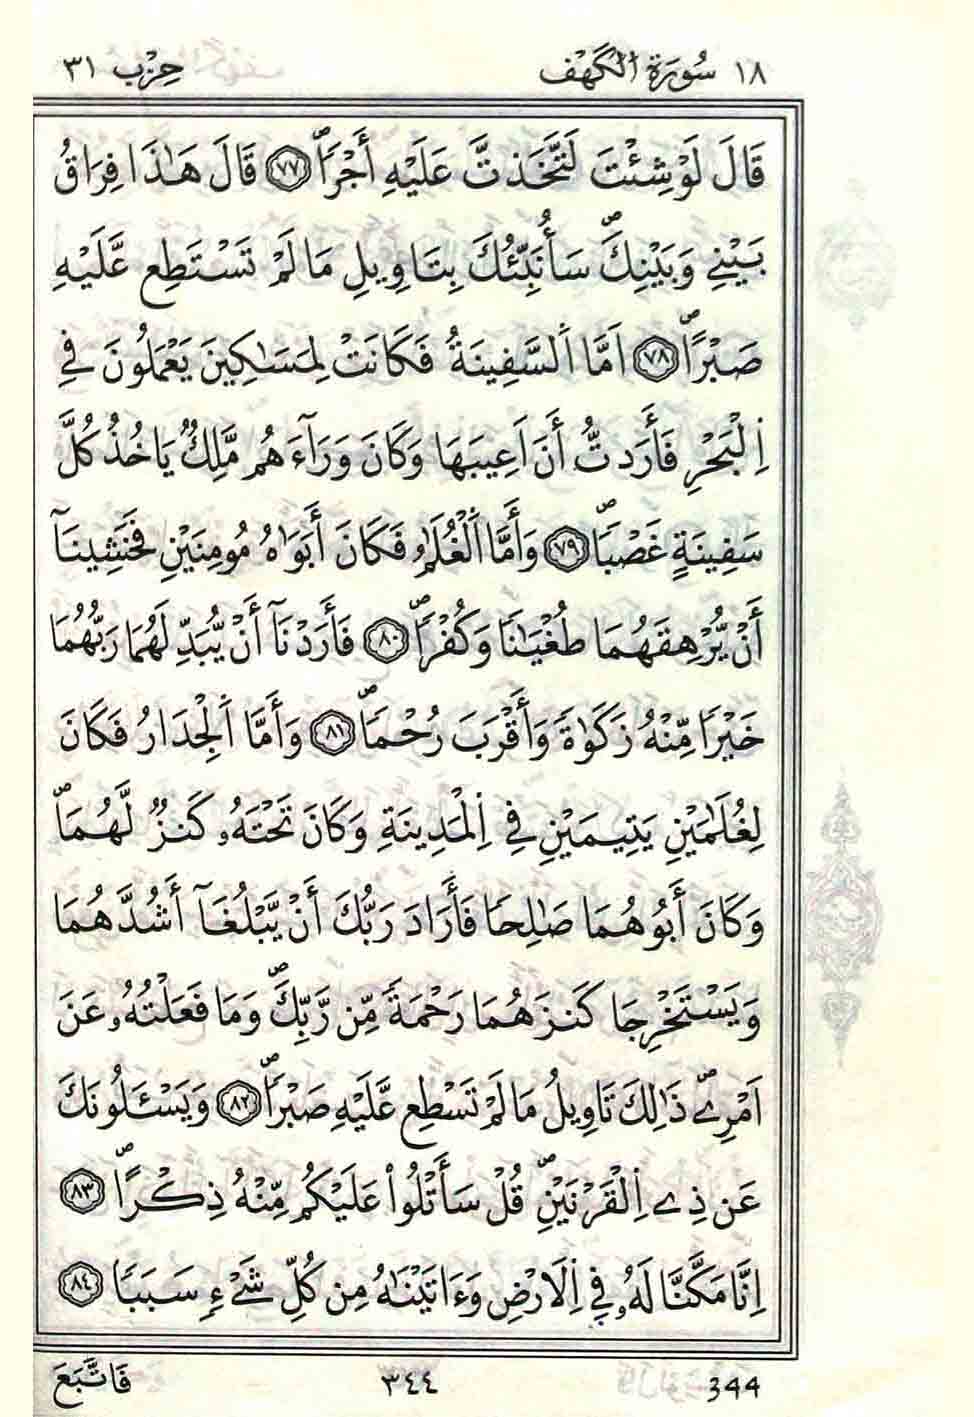 ١٨ سُورَةُ الْكَهْفِ حِزْب ٣١
قَالَ لَوْ شِئْتَ لَتَّخَذتَّ عَلَيْهِ أَجْراًۖ ٧٧ قَالَ هَـٰذَا فِرَاقُ
بَيْنِے وَبَيْنِكَۖ سَأُنَبِّئُكَ بِتَاوِيلِ مَا لَمْ تَسْتَطِع عَّلَيْهِ
صَبْراًۖ ٧٨ اَمَّا اَلسَّفِينَةُ فَكَانَتْ لِمَسَـٰكِينَ يَعْمَلُونَ فِے
اِلْبَحْرِ فَأَرَدتُّ أَنَ اَعِيبَهَا وَكَانَ وَرَآءَهُم مَّلِكٌ يَاخُذُ كُلَّ
سَفِينَةٍ غَصْباًۖ ٧٩ وَأَمَّا اَلْغُلَـٰمُ فَكَانَ أَبَوَٰهُ مُومِنَيْنِ فَخَشِينَآ
أَنْ يُّرْهِقَهُمَا طُغْيَـٰناً وَكُفْراًۖ ٨٠ فَأَرَدْنَآ أَنْ يُّبَدِّلَهُمَا رَبُّهُمَا
خَيْراً مِّنْهُ زَكَوٰةً وَأَقْرَبَ رُحْماًۖ ٨١ وَأَمَّا اَلْجِدَارُ فَكَانَ
لِغُلَـٰمَيْنِ يَتِيمَيْنِ فِے اِلْمَدِينَةِ وَكَانَ تَحْتَهُۥ كَنزٌ لَّهُمَاۖ
وَكَانَ أَبُوهُمَا صَـٰلِحاً فَأَرَادَ رَبُّكَ أَنْ يَّبْلُغَآ أَشُدَّهُمَا
وَيَسْتَخْرِجَا كَنزَهُمَا رَحْمَةً مِّن رَّبِّكَۖ وَمَا فَعَلْتُهُۥ عَنَ
اَمْرِےۖ ذَٰلِكَ تَاوِيلُ مَا لَمْ تَسْطِع عَّلَيْهِ صَبْراًۖ ٨٢ وَيَسْـَٔلُونَكَ
عَن ذِے اِلْقَرْنَيْنِۖ قُلْ سَأَتْلُواْ عَلَيْكُم مِّنْهُ ذِكْراًۖ ٨٣
اِنَّا مَكَّنَّا لَهُۥ فِے اِلَارْضِ وَءَاتَيْنَـٰهُ مِن كُلِّ شَےْءٍ سَبَباً ٨٤
فَاتَّبَعَ ٣٤٤ 344